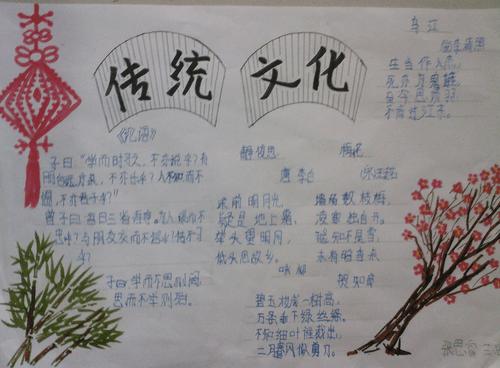 传统
文化
乌江
宋李清照
生当作人杰,
死亦为鬼雄
至今思项羽
不肯过江东。
《论语》
子曰:"学而时习之,不亦说乎?有
朋自远方来,不亦乐乎?人不知而不
愠,不亦君子乎?"
曾子曰:吾日三省吾身。为人谋而不
忠乎?与朋友交而不信乎?传不习
乎?
子曰:学而不思则罔,
思而不学则殆。
静夜思
唐 李白
床前明月光,
疑是地上霜,
举头望明月,
低头思故乡。
梅花
宋 王安石
墙角数枝梅,
凌寒独自开。
遥知不是雪,
未有暗香来
咏柳
贺知章
碧玉妆成一树高,
万条垂下绿丝绦。
不知细叶谁裁出,
二月春风似剪刀。